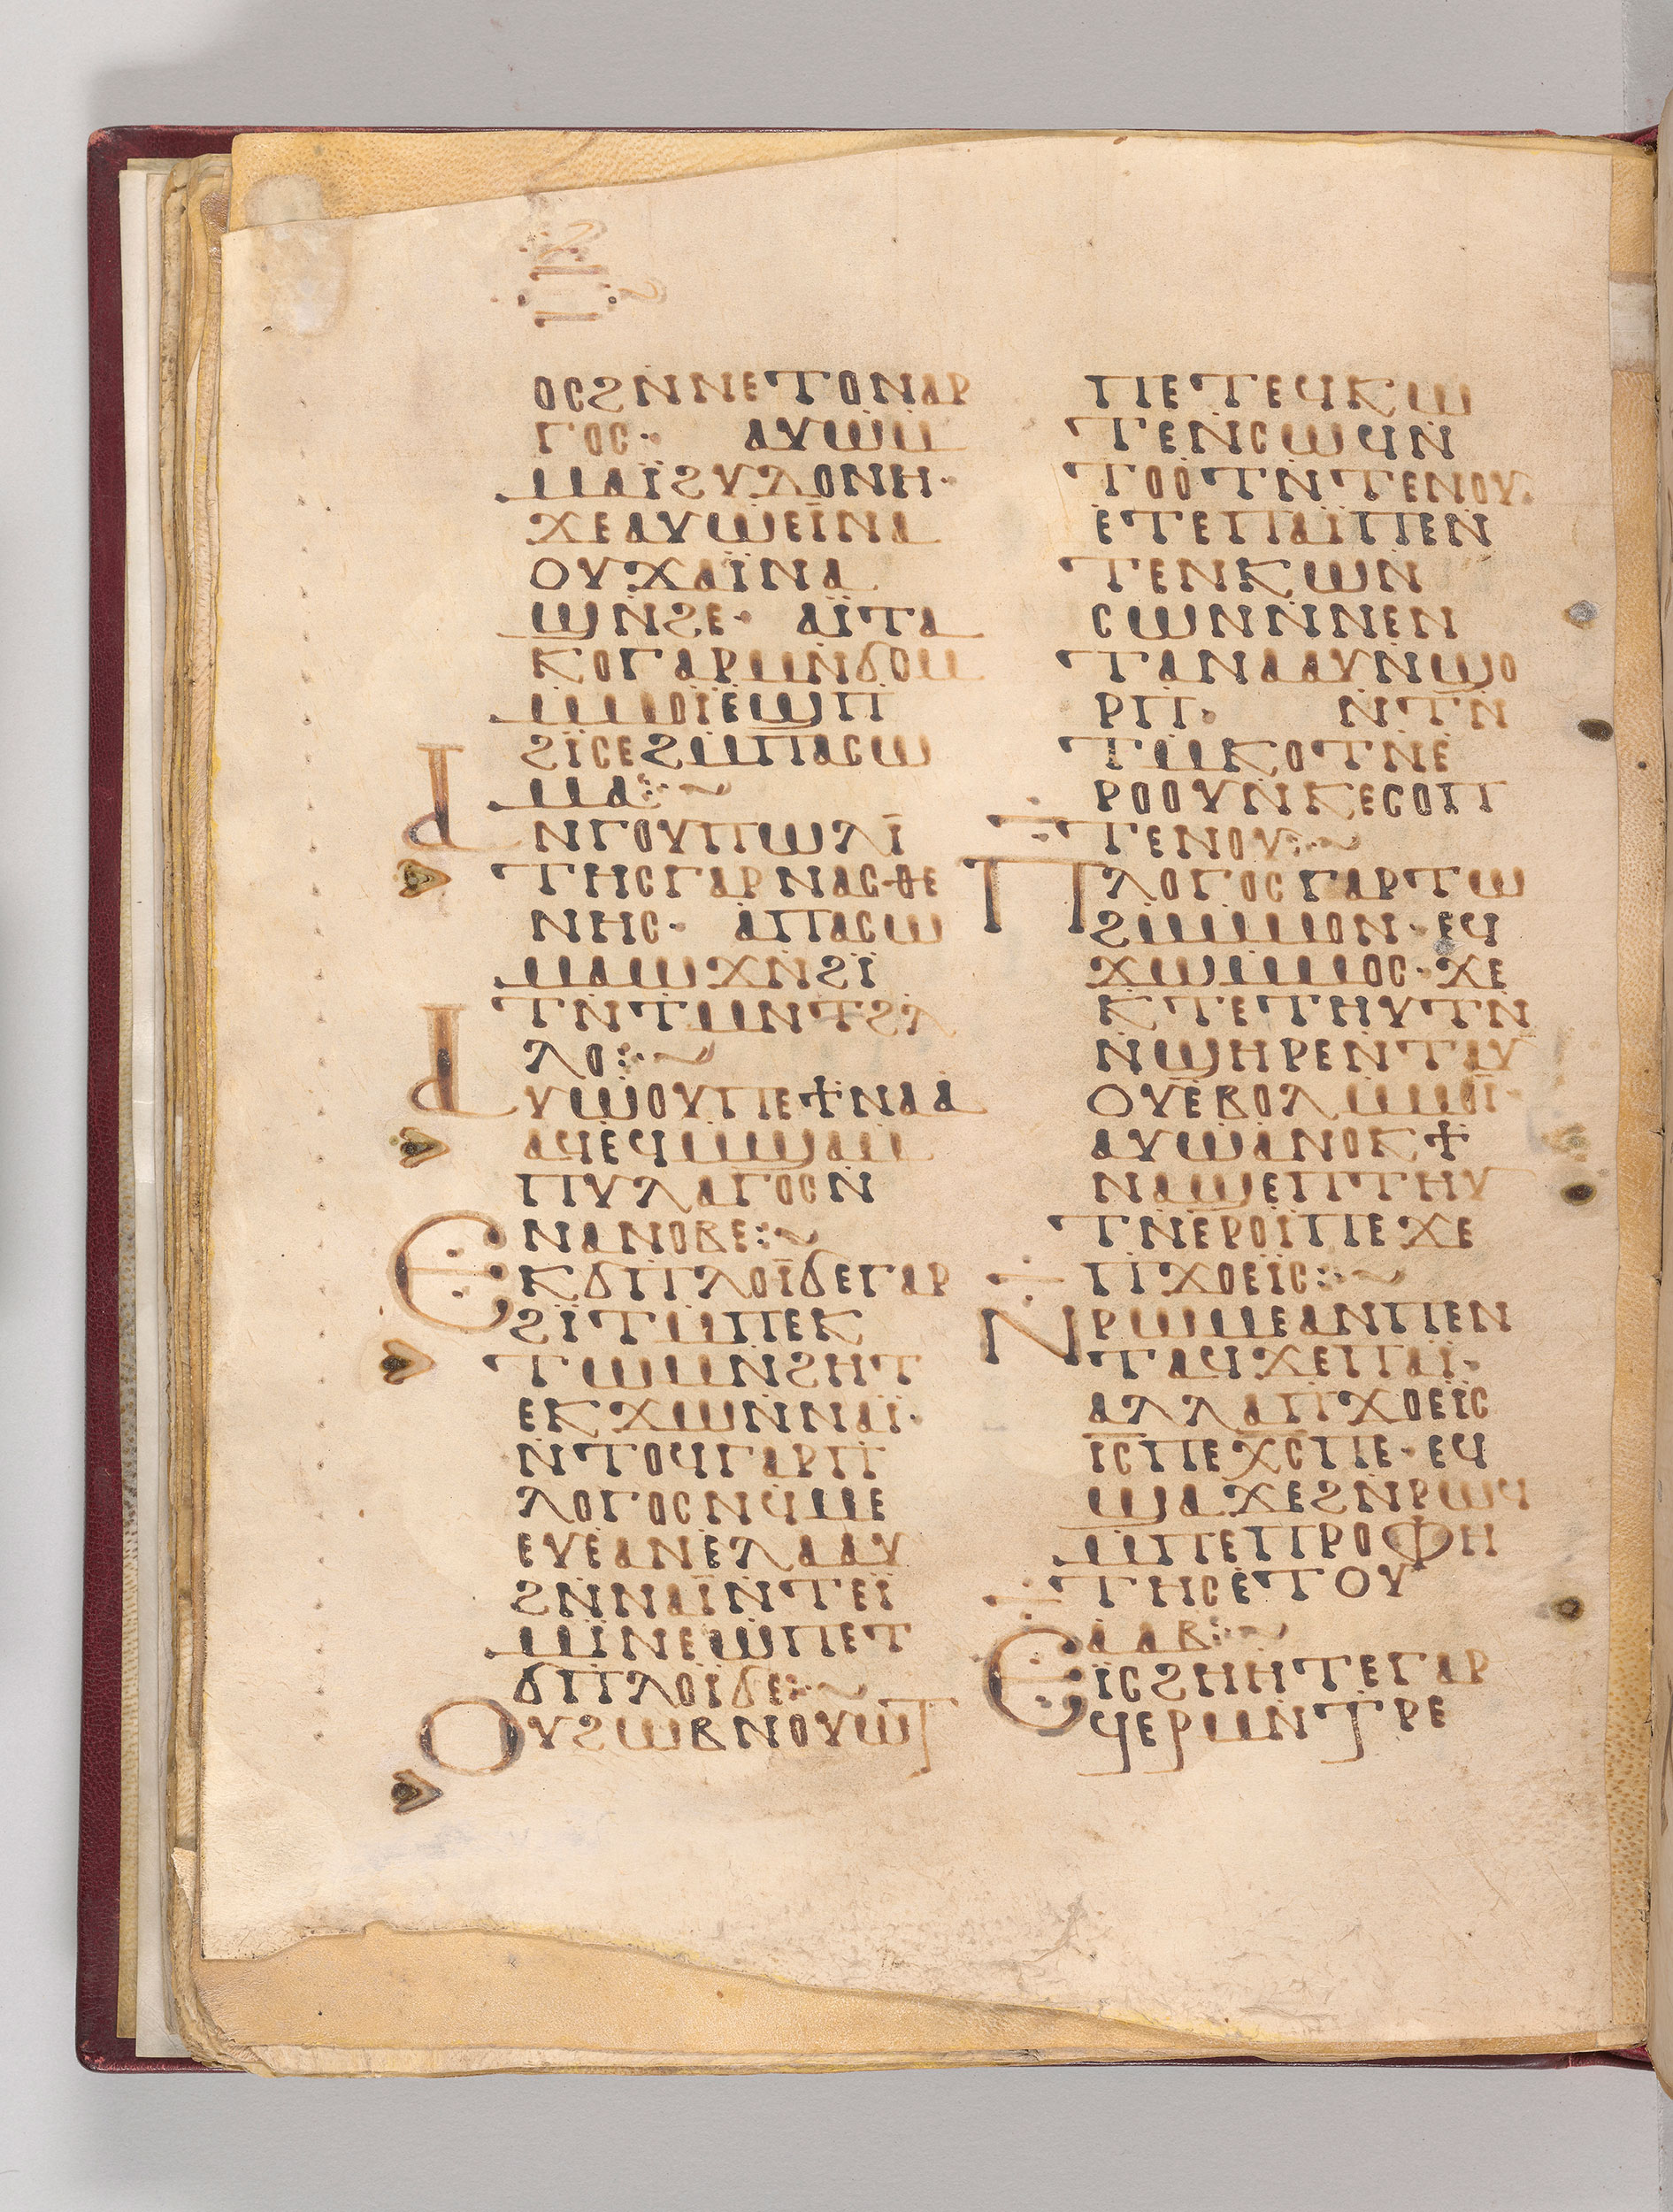 ⲟⲥϩⲛⲛⲉⲧⲟⲛⲁⲣ
ⲅⲟⲥ· ⲁⲩⲱⲙ
ⲙⲁⲓ̈ϩⲩⲇⲟⲛⲏ·
ϫⲉⲁⲩⲱⲉⲓ̈ⲛⲁ
ⲟⲩϫⲁⲓ̈ⲛⲁ
ϣⲛ̇ϩⲉ· ⲁⲓ̈ⲧⲁ
ⲕⲟⲅⲁⲣⲙⲛ̇ϭⲟⲙ
ⲙ̇ⲙⲟⲓ̈ⲉϣⲡ
ϩⲓ̈ⲥⲉϩⲙ̇ⲡⲁⲥⲱ
ⲙⲁ:~
ⲁⲛⲅⲟⲩⲡⲱⲗⲓ̈
ⲧⲏⲥⲅⲁⲣⲛⲁⲥⲑⲉ
ⲛⲏⲥ· ⲁⲡⲁⲥⲱ
ⲙⲁⲱϫⲛ̇ϩⲓ̈
ⲧⲛ̇ⲧⲙⲛⲧϩⲗ̇
ⲗⲟ:~
ⲁⲩⲱⲟⲩⲡⲉϯⲛⲁⲁ
ⲁϥⲉϥⲙϣⲁⲙ
ⲡⲩⲗⲁⲅⲟⲥⲛ
ⲛⲁⲛⲟⲃⲉ:~
ⲉⲕϭⲡ̇ⲗⲟⲓ̈ϭⲉⲅⲁⲣ
ϩⲓ̈ⲧⲙ̇ⲡⲉⲕ
ⲧⲱⲙⲛ̇ϩⲏⲧ
ⲉⲕϫⲱⲛ̇ⲛⲁⲓ̈·
ⲛ̇ⲧⲟϥⲅⲁⲣⲡ̇
ⲗⲟⲅⲟⲥⲛϥ̇ⲙⲉ
ⲉⲩⲉⲁⲛⲉⲗⲁⲁⲩ
ϩⲛ̇ⲛⲁⲓ̈ⲛ̇ⲧⲉⲓ̈
ⲙⲓ̈ⲛⲉⲱ̇ⲡⲉⲧ
ϭⲡ̇ⲗⲟⲓ̈ϭⲉ:~
ⲟⲩϩⲱⲃⲛⲟⲩⲱⲧ
ⲡⲉⲧⲉϥⲕⲱ
ⲧⲉⲛ̇ⲥⲱϥⲛ̇
ⲧⲟⲟⲧⲛ̇ⲧⲉⲛⲟⲩ·
ⲉⲧⲉⲡⲁⲓ̈ⲡⲉⲛ̇
ⲧⲉⲛⲕⲱⲛ̇
ⲥⲱⲛⲛ̇ⲛⲉⲛ
ⲧⲁⲛⲁⲁⲩⲛ̇ϣⲟ
ⲣⲡ̇· ⲛ̇ⲧⲛ̇
ⲧⲙ̇ⲕⲟⲧⲛ̇ⲉ
ⲣⲟⲟⲩⲛ̇ⲕⲉⲥⲟⲡ
ⲧⲉⲛⲟⲩ:~
ⲡⲗⲟⲅⲟⲥⲅⲁⲣⲧⲱ
ϩⲙ̇ⲙ̇ⲙⲟⲛ·ⲉϥ
ϫⲱⲙ̇ⲙⲟⲥ·ϫⲉ
ⲕⲧⲉⲧⲏⲩⲧⲛ̇
ⲛ̇ϣⲏⲣⲉⲛ̇ⲧⲁⲩ
ⲟⲩⲉⲃⲟⲗⲙ̇ⲙⲟⲓ̈·
ⲁⲩⲱⲁⲛⲟⲕϯ
ⲛⲁϣⲉⲡⲧⲏⲩ
ⲧⲛ̇ⲉⲣⲟⲓ̈ⲡⲉϫⲉ
ⲡ̇ϫⲟⲉⲓ̈ⲥ:~
ⲛⲣⲱⲙⲉⲁⲛⲡⲉⲛ
ⲧⲁϥϫⲉⲡⲁⲓ̈·
ⲁⲗⲗⲁⲡ̇ϫⲟⲉⲓ̈ⲥ
ⲓ̅ⲥ̅ⲡⲉⲭ̅ⲥ̅ⲡⲉ·ⲉϥ
ϣⲁϫⲉϩⲛ̇ⲣⲱϥ
ⲙ̇ⲡⲉⲡⲣⲟⲫⲏ
ⲧⲏⲥⲉⲧⲟⲩ
ⲁⲁⲃ:~
ⲉⲓ̈ⲥϩⲏⲏⲧⲉⲅⲁⲣ
ϥⲉⲣⲙⲛ̇ⲧⲣⲉ